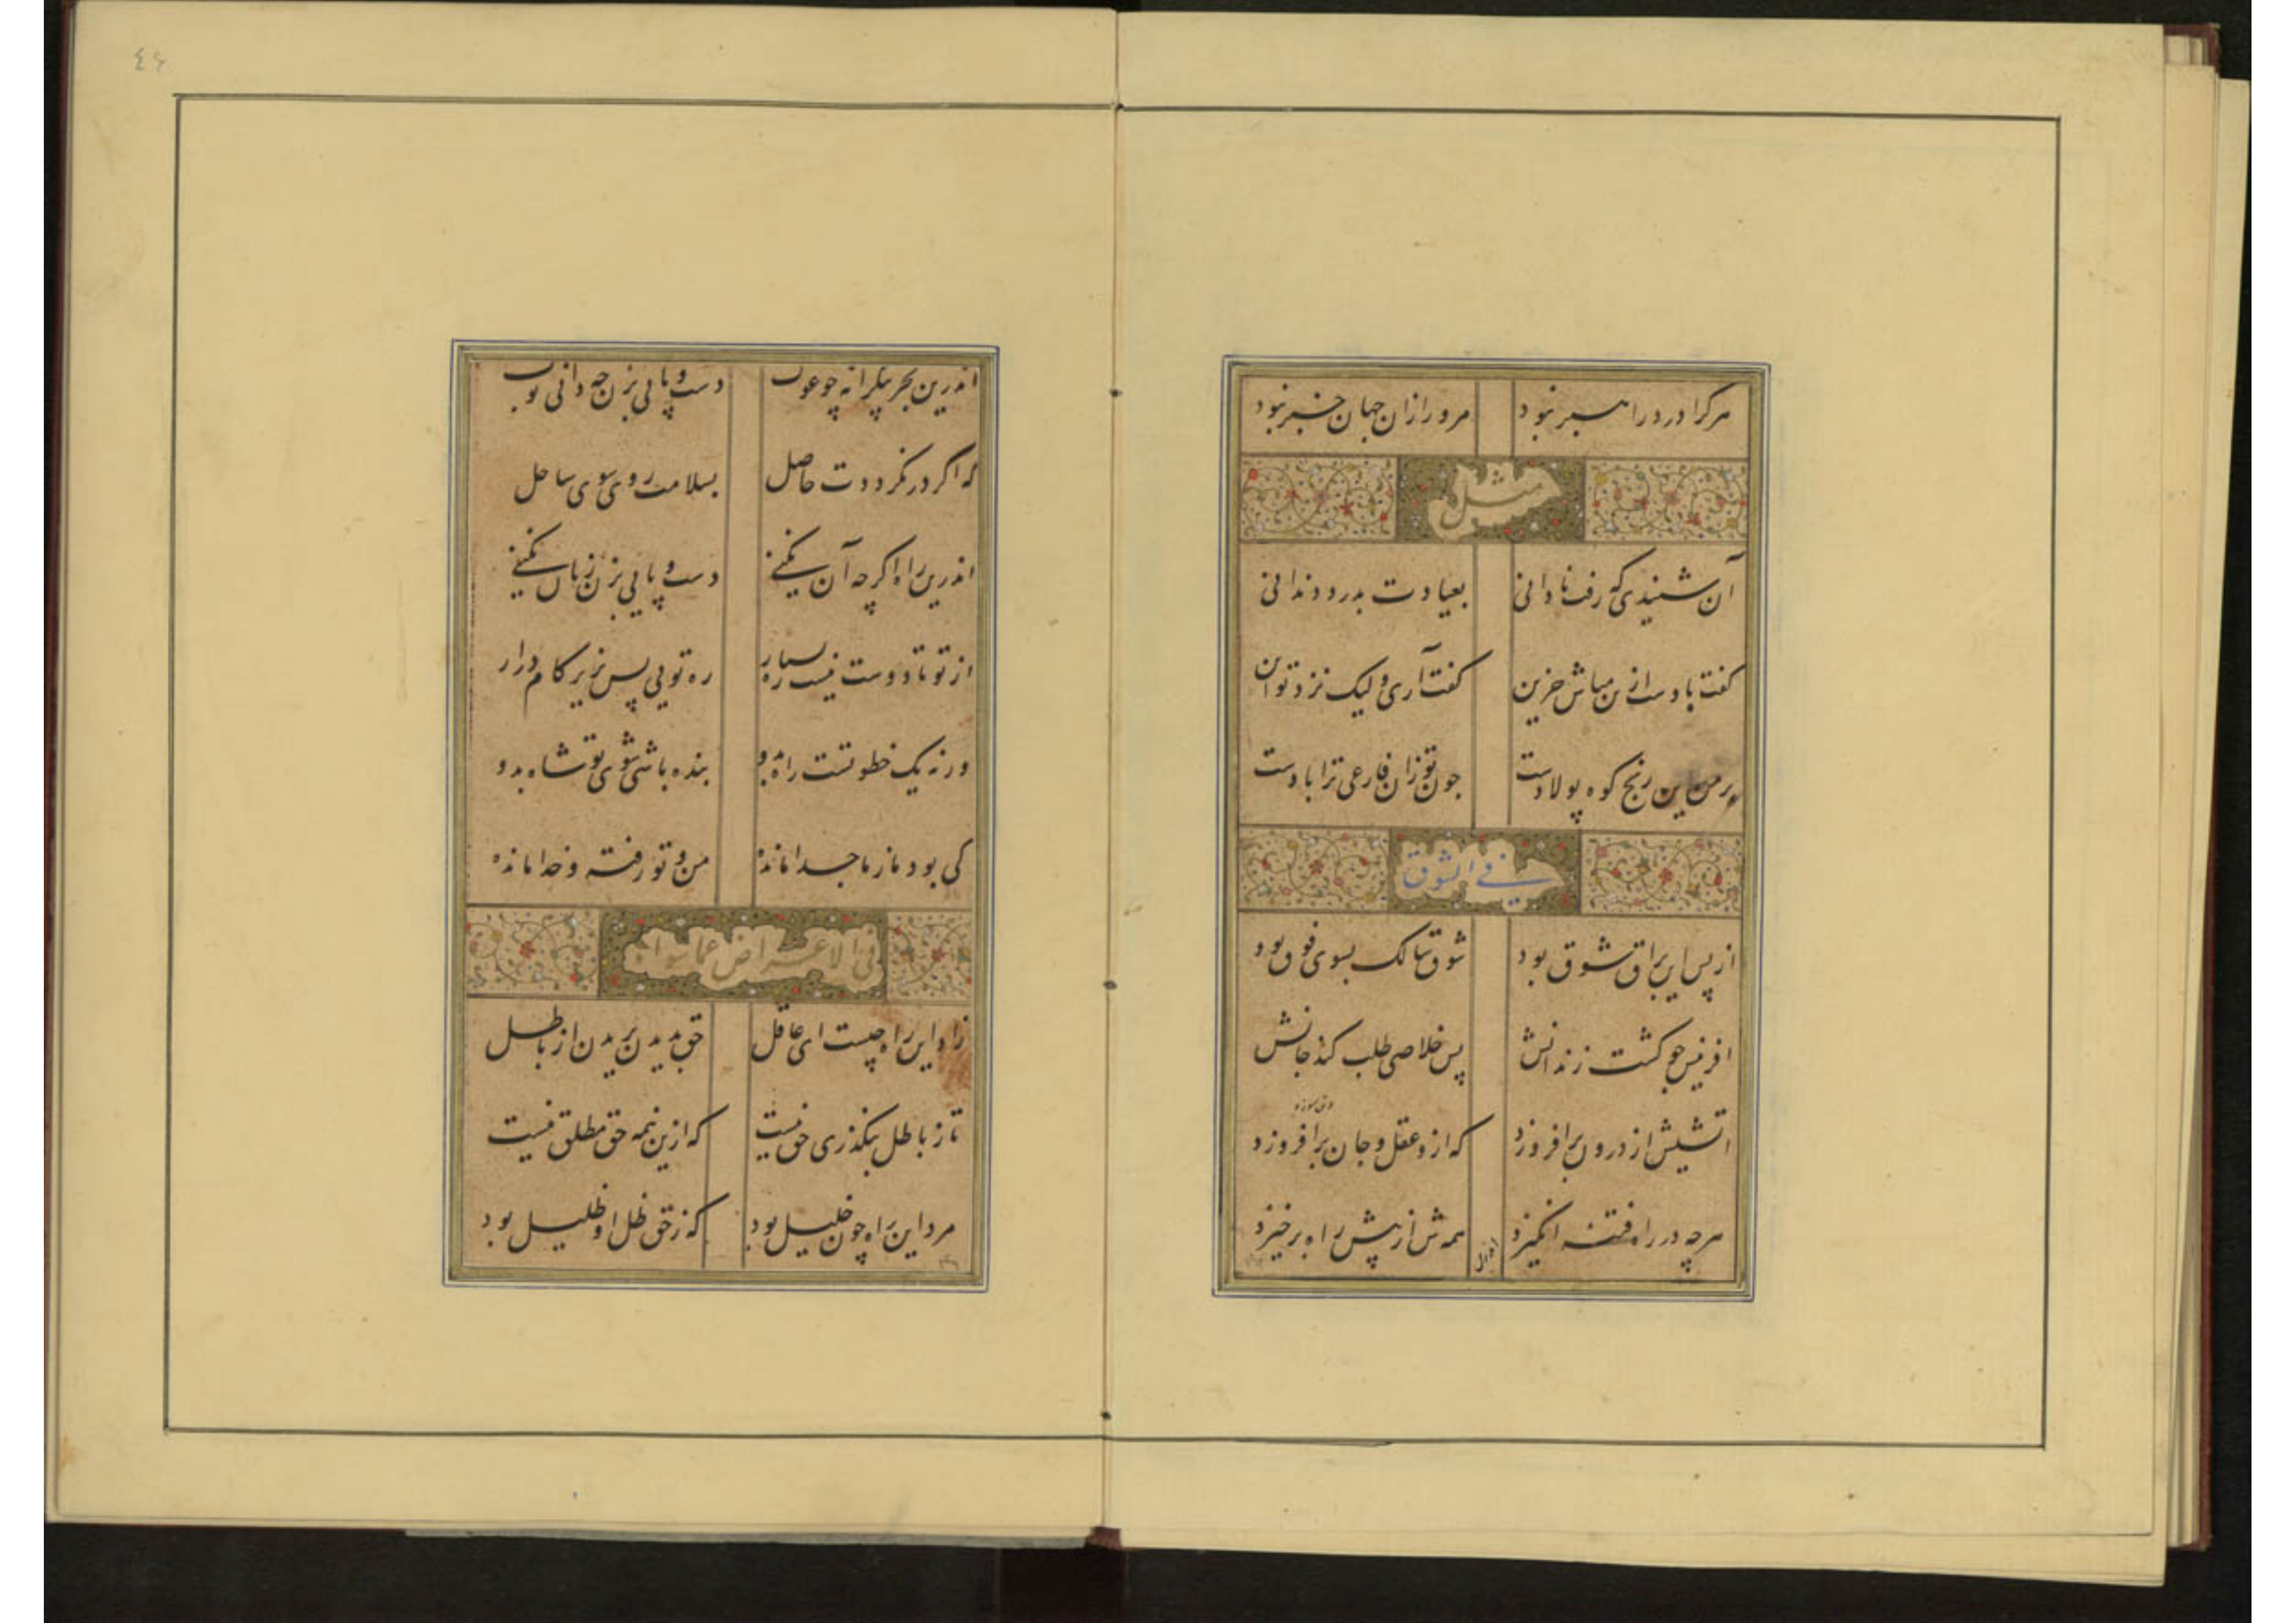 هر کرا درد راهبر نبود مرو را زان جهان خبر نبود
مثل
آن شنیدی که رفت نادانی بعیادت بدرد دندانی
گفت بادست ازین مباش حزین گفت آری ولیک نزد تو این
بر من این رنج کوه پولادست چون تو زان فارغی ترا بادست
فی الشوق
از پس این براق شوق بود شوق سالک بسوی فوق بود
افرینش چو گشت زندانش پس خلاصی طلب کند جانش
اتشیش از درون برافروزد که ازو عقل و جان برافروزد
هرچه در راه فتنه انگیزد همه ش از پیش راه برخیزد
٤٤
اندرین بحر بیکرانه چو غوک دست و پائی بزن چه دانی بوک
که اگر در نگرددت حاصل بسلامت روی سوی ساحل
اندرین راه اگرچه آن نکنی دست و پایی بزن زیان نکنی
از تو تا دوست نیست ره بسیار ره تویی پس بزیر کام درار
ورنه یک خطوتست راه بدو بنده باشی شوی تو شاه بدو
کی بود ما ز ما جدا مانده من و تو رفته و خدا مانده
فی الاعراض عما سواه
زاد این راه چیست ای عاقل حق بدیدن بریدن از باطل
تا ز باطل بنگذری حق نیست که ازین نیمه حق مطلق نیست
مرد این راه چون خلیل بود که ز حق ظل او ظلیل بود